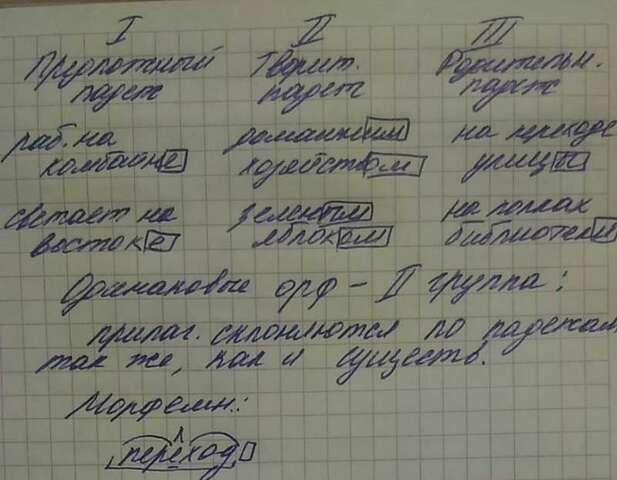 I II III
Предложный Творит. Родительн.
падеж падеж падеж
раб. на домашним на переходе
комбайне хозяйством улицы
светает на зеленым на полках
востоке яблоком библиотеки
Одинаковые орф – II группа:
прилаг. склоняются по падежам
так же, как и существ.
Морфемн.:
переход